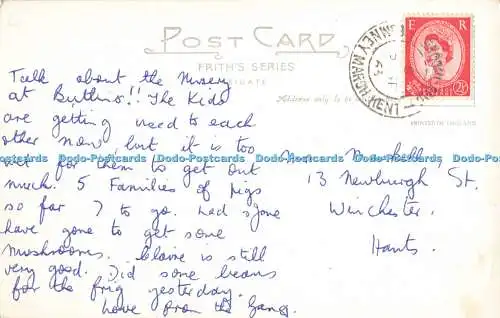 POST CARD
FRITH'S SERIES
REIGATE
Address only to be
E R
2½D
ROMNEY MARSH KENT
PRINTED IN ENGLAND
Talk about the Nursery
at Butlins!! The Kids
are getting used to each
other now, but it is too
wet for them to get out
much. 5 Families of pigs
so far 7 to go. Dad & Jane
have gone to get some
mushrooms. Claire is still
very good. Did some beans
for the frig yesterday.
Love from the Gang.
13 Newburgh St.
Winchester.
Hants.
Dodo-Postcards Dodo-Postcards Dodo-Postcards Dodo-Postcards Dodo-Postcards